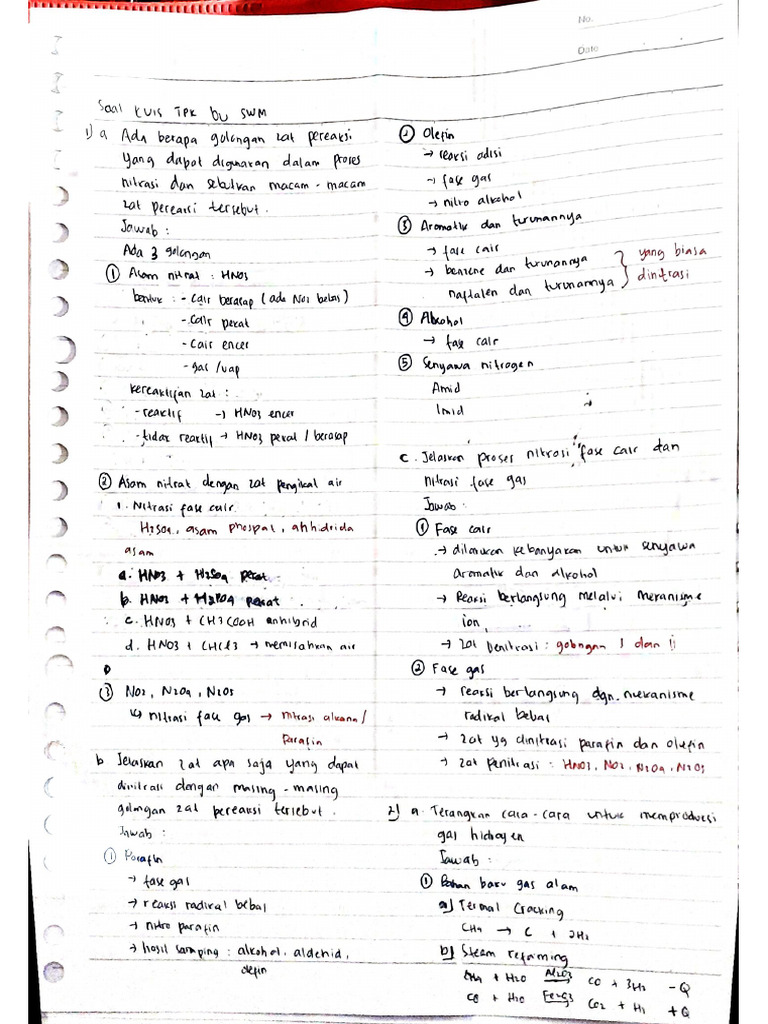 No.
Date
Soal kuis TPK bu SWM
1) a Ada berapa golongan zat pereaksi
yang dapat digunakan dalam proses
nitrasi dan sebutkan macam-macam
zat pereaksi tersebut.
Jawab :
Ada 3 golongan
① Asam nitrat : HNO3
bentuk : - Cair berasap (ada NO2 bebas)
- Cair pekat
- Cair encer
- gas /uap
Kereaktifan zat :
- reaktif → HNO3 encer
- tidak reaktif → HNO3 pekat / berasap
② Asam nitrat dengan zat pengikat air
1. Nitrasi fase cair.
H2SO4, asam phospat, anhidrida
asam
a. HNO3 + H2SO4 pekat
b. HNO3 + H3PO4 pekat
c. HNO3 + CH3COOH anhibrid
d. HNO3 + CHCl3 → memisahkan air
③ NO2, N2O4, N2O5
↳ nitrasi fase gas → nitrasi alkana/
Parafin
b Jelaskan zat apa saja yang dapat
dinitrasi dengan masing-masing
golongan zat pereaksi tersebut.
Jawab :
① Parafin
→ fase gas
→ reaksi radikal bebal
→ nitro parafin
→ hasil samping : alkohol, aldehid,
olefin
② Olefin
→ reaksi adisi
→ fase gas
→ nitro alkohol
③ Aromatik dan turunannya
→ fase cair
→ benzene dan turunannya
naftalen dan turunannya } yang biasa
dinitrasi
④ Alkohol
→ fase cair
⑤ Senyawa nitrogen
Amid
Imid
c. Jelaskan proses nitrasi fase cair dan
nitrasi fase gas
Jawab :
① Fase cair
→ dilakukan kebanyakan untuk senyawa
aromatik dan alkohol
→ Reaksi berlangsung melalui mekanisme
ion
→ zat penitrasi : golongan I dan II
② Fase gas
→ reaksi berlangsung dgn. mekanisme
radikal bebas
→ zat yg dinitrasi parafin dan olefin
→ zat penitrasi : HNO3, NO2, N2O4, N2O5
2) a. Terangkan cara-cara untuk memproduksi
gas hidrogen
Jawab :
① Bahan baku gas alam
a) Termal Cracking
CH4 → C + 2H2
b) Steam reforming
CH4 + H2O Al2O3 CO + 3H2 -Q
CO + H2O Fe2O3 CO2 + H2 +Q